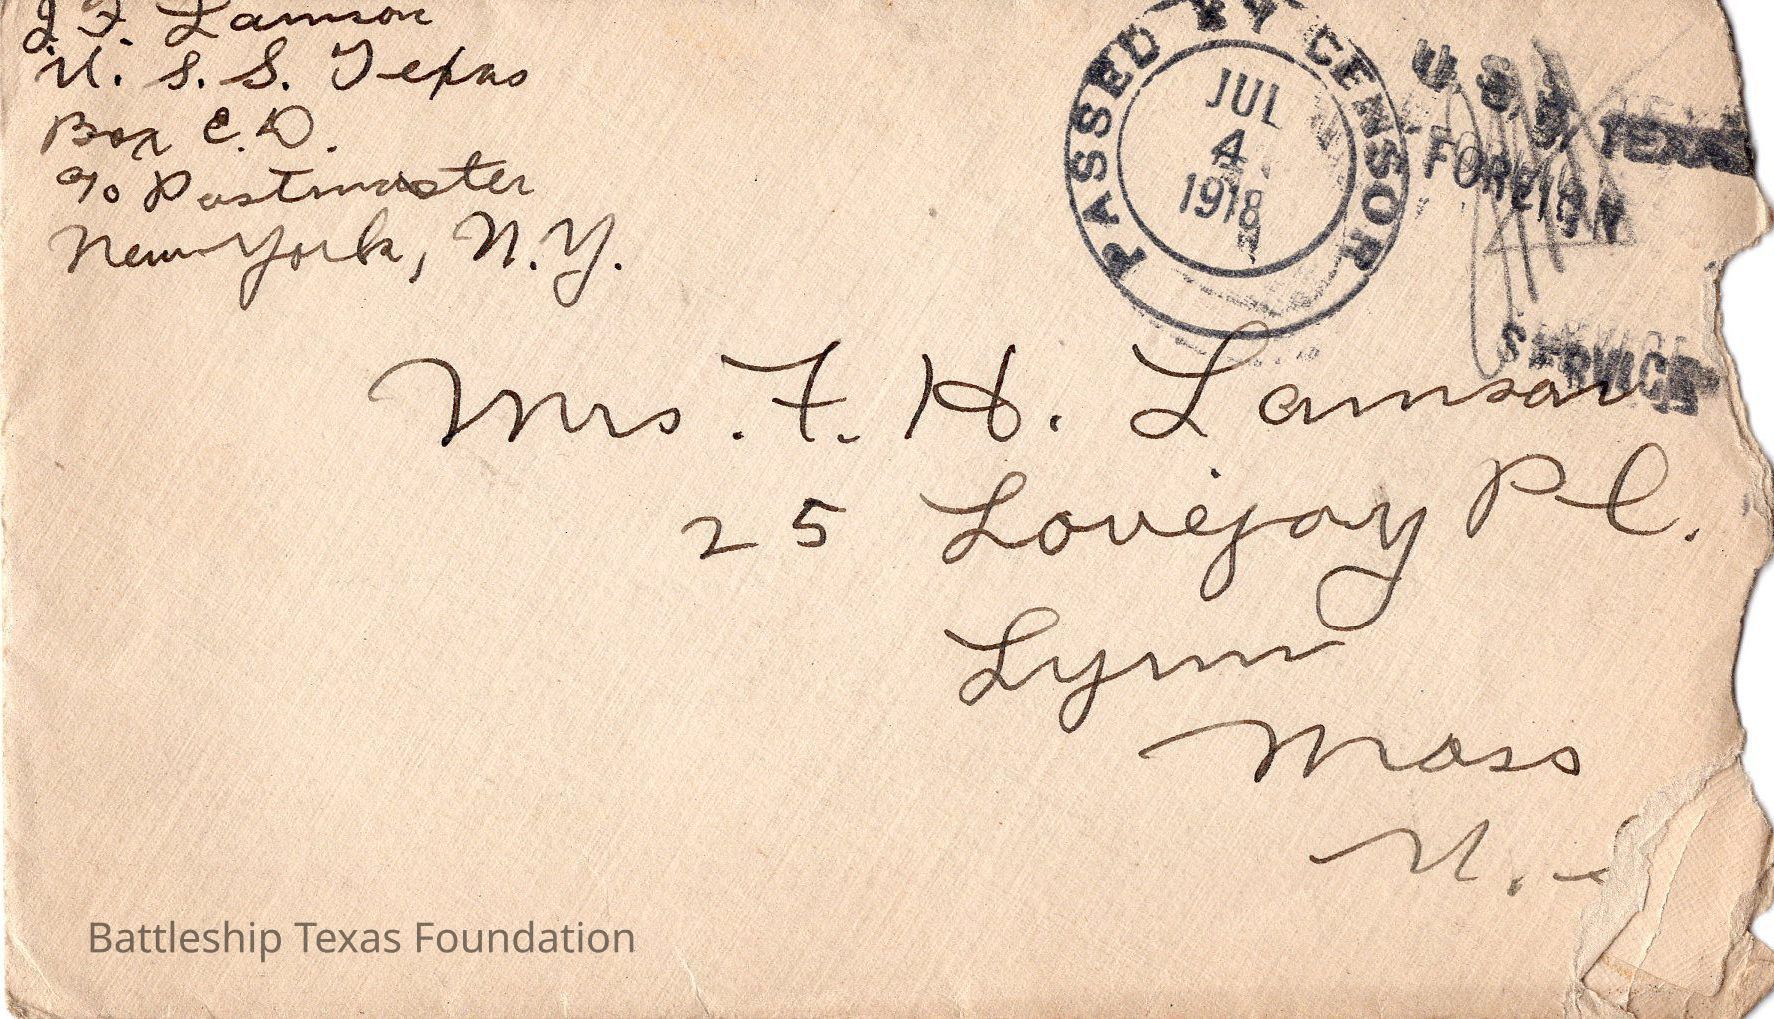 J. F. Lamson
U. S. S. Texas
Box E.D.
c/o Postmaster
New York, N.Y.
PASSED BY CENSOR
JUL
4
1918
U.S.S. TEXAS
FOREIGN
SERVICE
Mrs. F. H. Lamson
25 Lovejoy Pl.
Lynn
Mass
U.
Battleship Texas Foundation